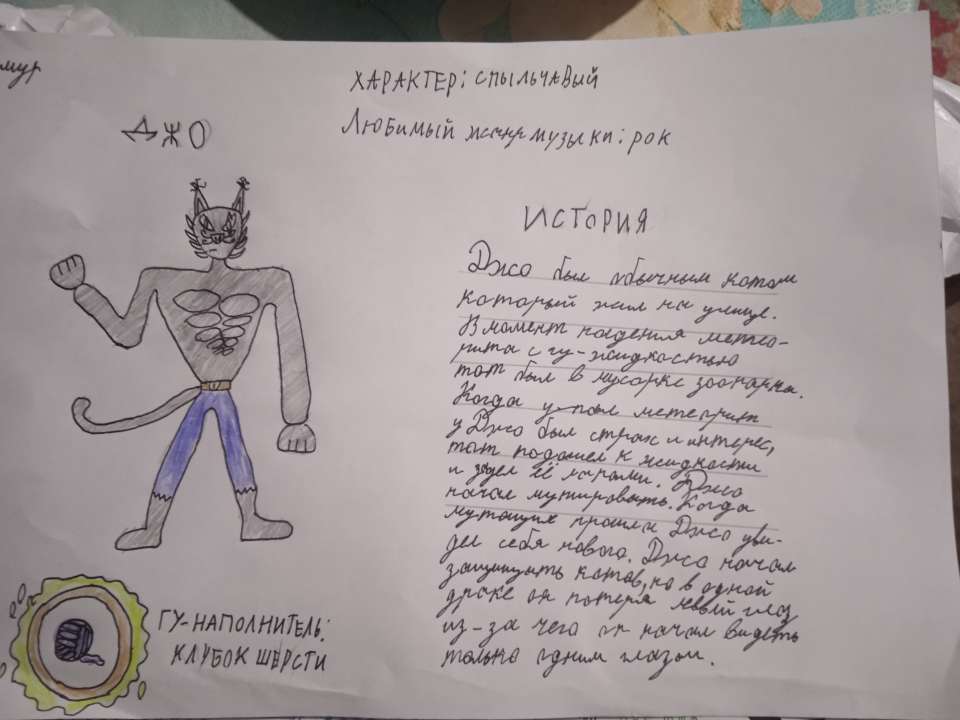 мур
ХАРАКТЕР: СПЫЛЬЧАВЫЙ
ДЖО
ЛЮБИМЫЙ жанр музыки: рок
ИСТОРИЯ
Джо был обычным котом
который жил на улице.
В момент падения метео-
рита с гу-жидкостью
тот был в мусорке зоопарка.
Когда упал метеорит
у Джо был страх и интерес,
тот подошел к жидкости
и задел её лапами. Джо
начал мутировать. Когда
мутация прошла Джо уви-
дел себя нового. Джо начал
защищать котов, но в одной
драке он потеря левый глаз
из-за чего он начал видеть
только одним глазом.
ГУ-НАПОЛНИТЕЛЬ:
КЛУБОК ШЕРСТИ